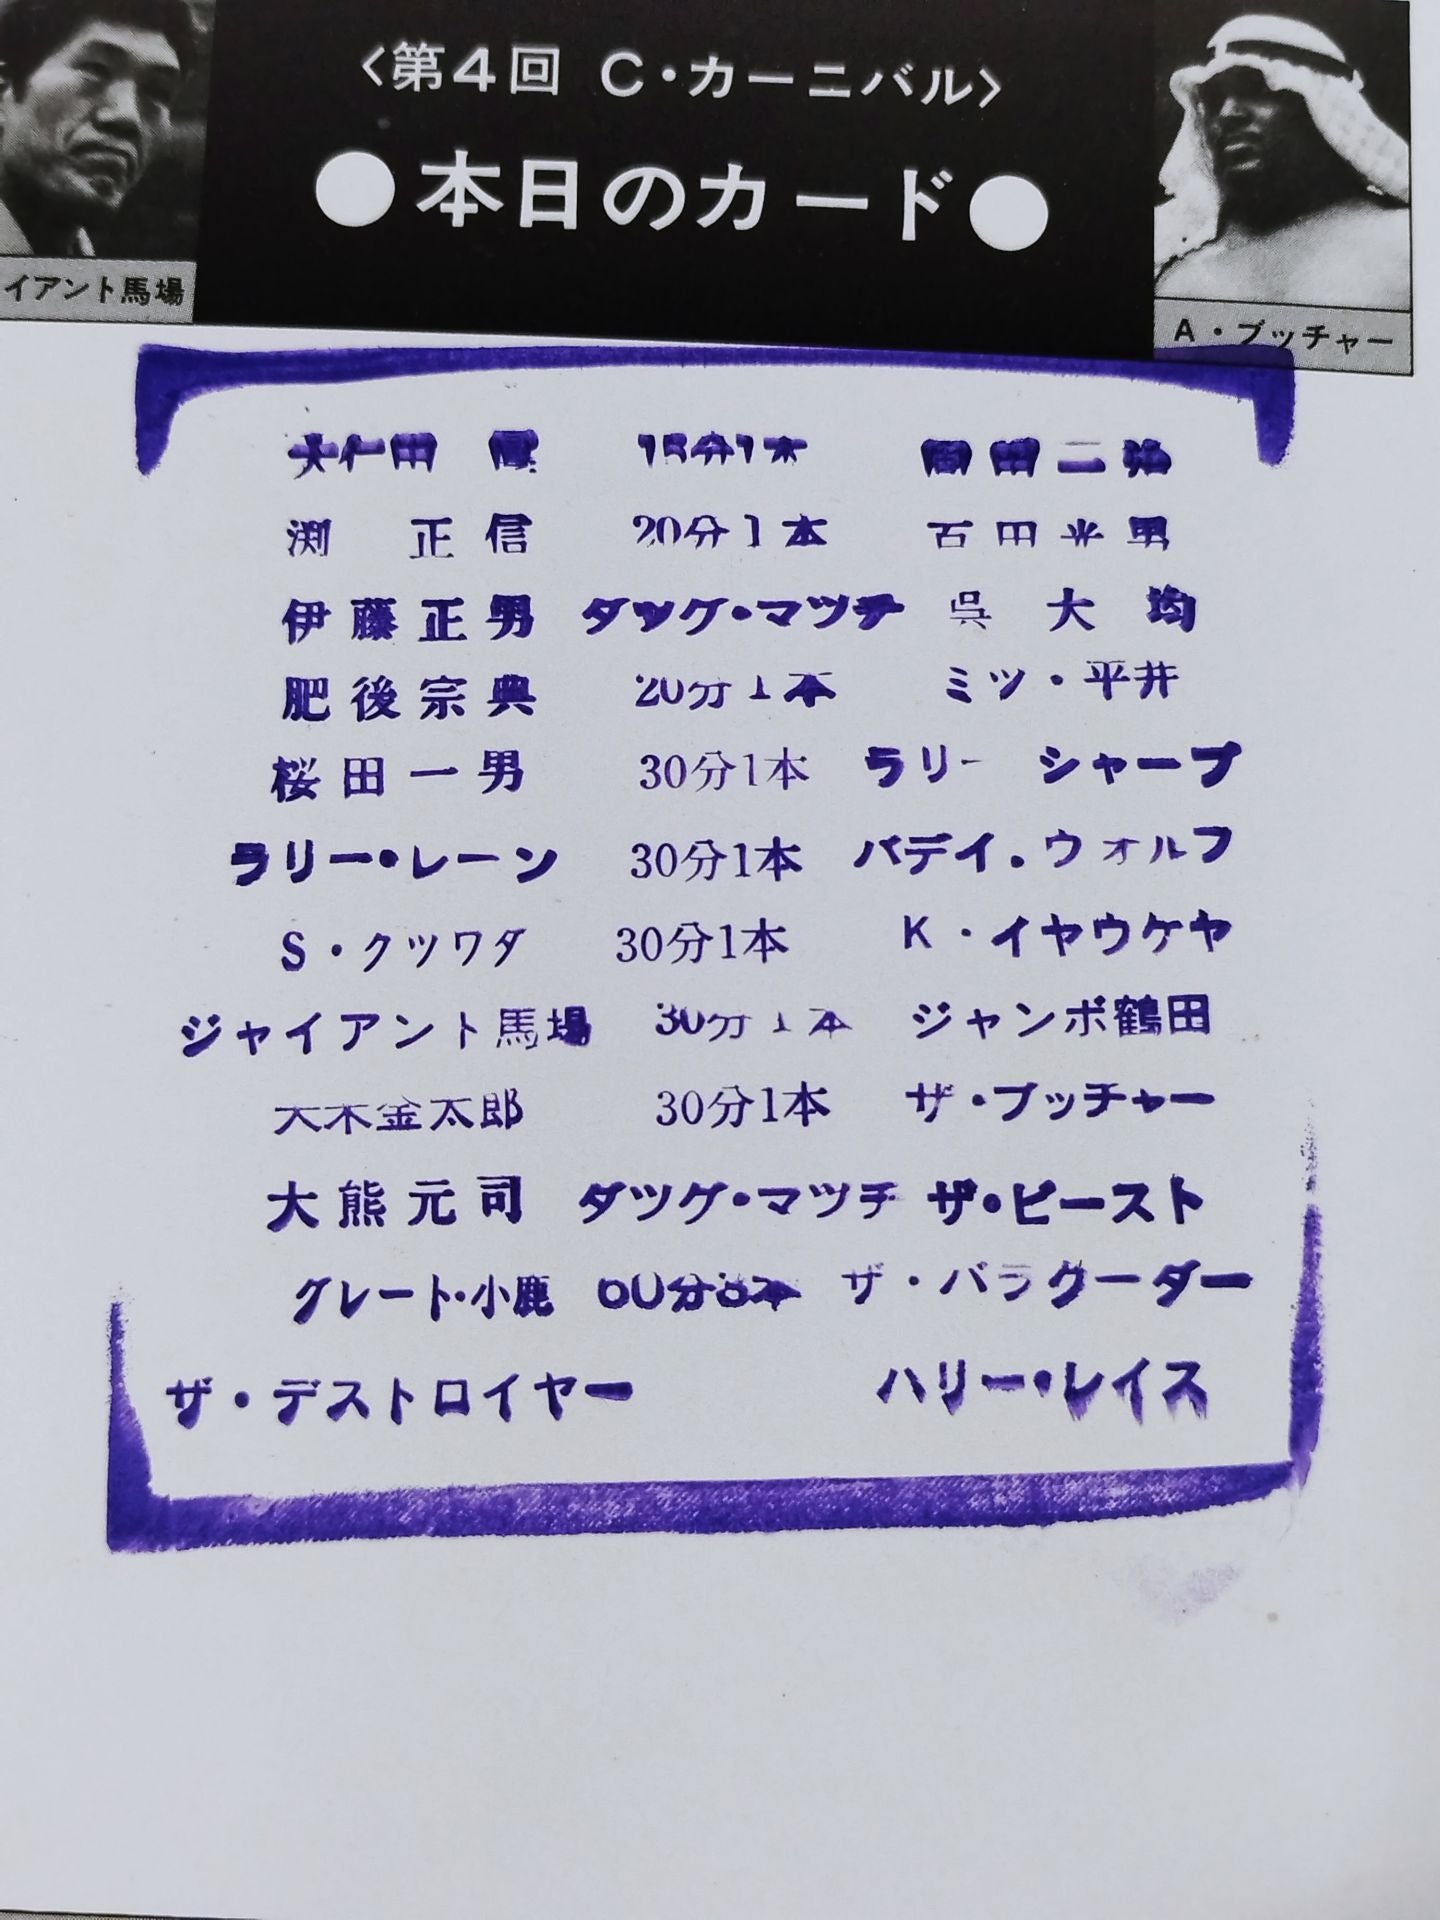 〈第4回 C・カーニバル〉
●本日のカード●
イアント馬場
A・ブッチャー
大仁田 15分1本 二
渕 正信 20分1本 百田光男
伊藤正男 タッグ・マッチ 呉 大 均
肥後宗典 20分1本 ミツ・平井
桜田一男 30分1本 ラリー シャープ
ラリー・レーン 30分1本 バディ.ウォルフ
S・クツワダ 30分1本 K・イヤウケヤ
ジャイアント馬場 30分1本 ジャンボ鶴田
大木金太郎 30分1本 ザ・ブッチャー
大熊元司 タッグ・マッチ ザ・ビースト
グレート・小鹿 ザ・バラクーダー
ザ・デストロイヤー ハリー・レイス